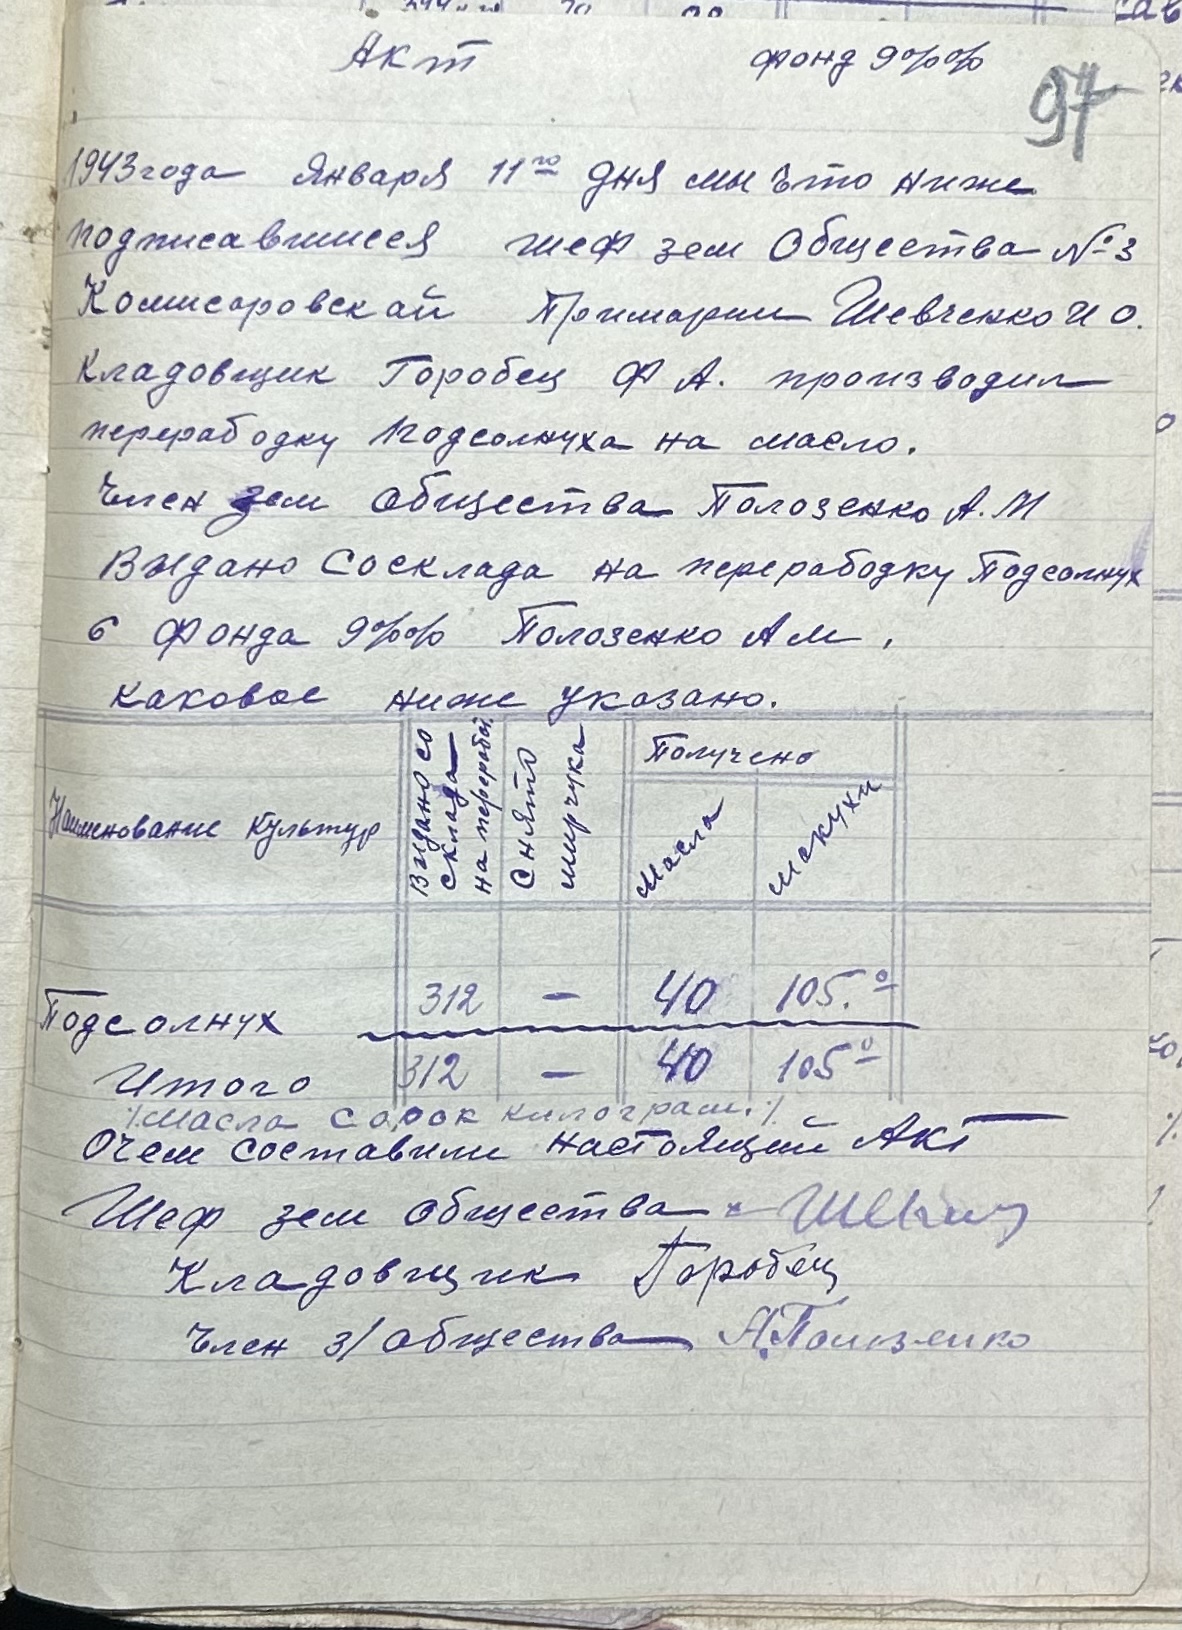 Акт фонд 9%%
97
1943 года Января 11го дня мы что ниже
подписавшиеся шеф зем Общества №3
Комисаровской Примарии Шевченко И О.
Кладовщик Горобец Ф А. производил
переработку Подсолнуха на масло.
Член зем Общества Полозенко А.М
Выдано Со склада на переработку Подсолнух
б Фонда 9%% Полозенко А М.
каковое ниже указано.
Наименование Культур | Выдано со склада на переработ. | Снято мирчука | Получено
Масла | Макухи
Подсолнух 312 — 40 105.0
Итого 312 — 40 105 0
/. Масла Сорок килограм. ./
О чем составили настоящий Акт
Шеф зем Общества
Кладовщик Горобец
Член з/ Общества А.Полозенко